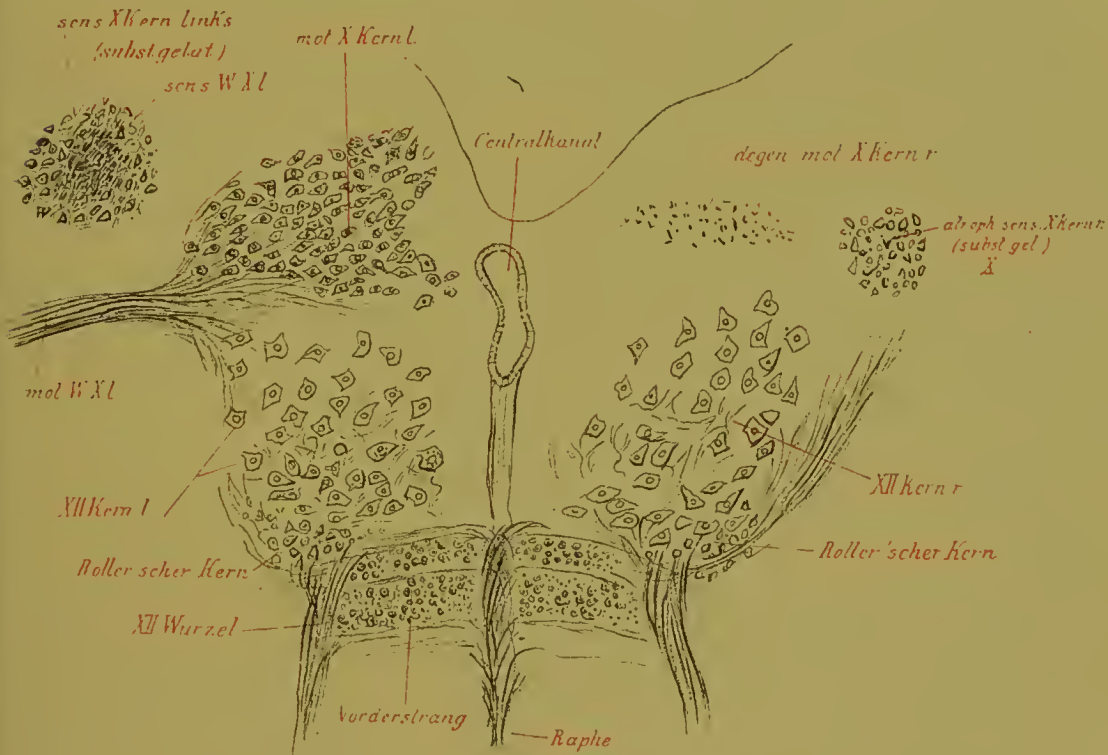 sens X Kern links
(subst gelat.)
sens W X l
mot X Kern l.
Centralkanal
degen mot X Kern r
atroph sens. X Kern r.
(subst gel)
X
mot W X l
XII Kern l
XII Kern r
Roller scher Kern
Roller'scher Kern
XII Wurzel
Vorderstrang
Raphe